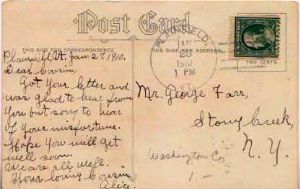 Post Card
THIS SIDE FOR CORRESPONDENCE
THIS SIDE FOR ADDRESS
Plainfield Vt. Jan 27, 1910.
Dear Cousin,
Got Your letter and
was glad to hear from
You but sorry to hear
of Your misfortune.
Hope You will get
well soon.
We are all well.
Your loving Cousin
Alice.
JAN
1910
1 PM
TWO CENTS
Mr. George Farr,
Stony Creek,
N. Y.
Washington Co